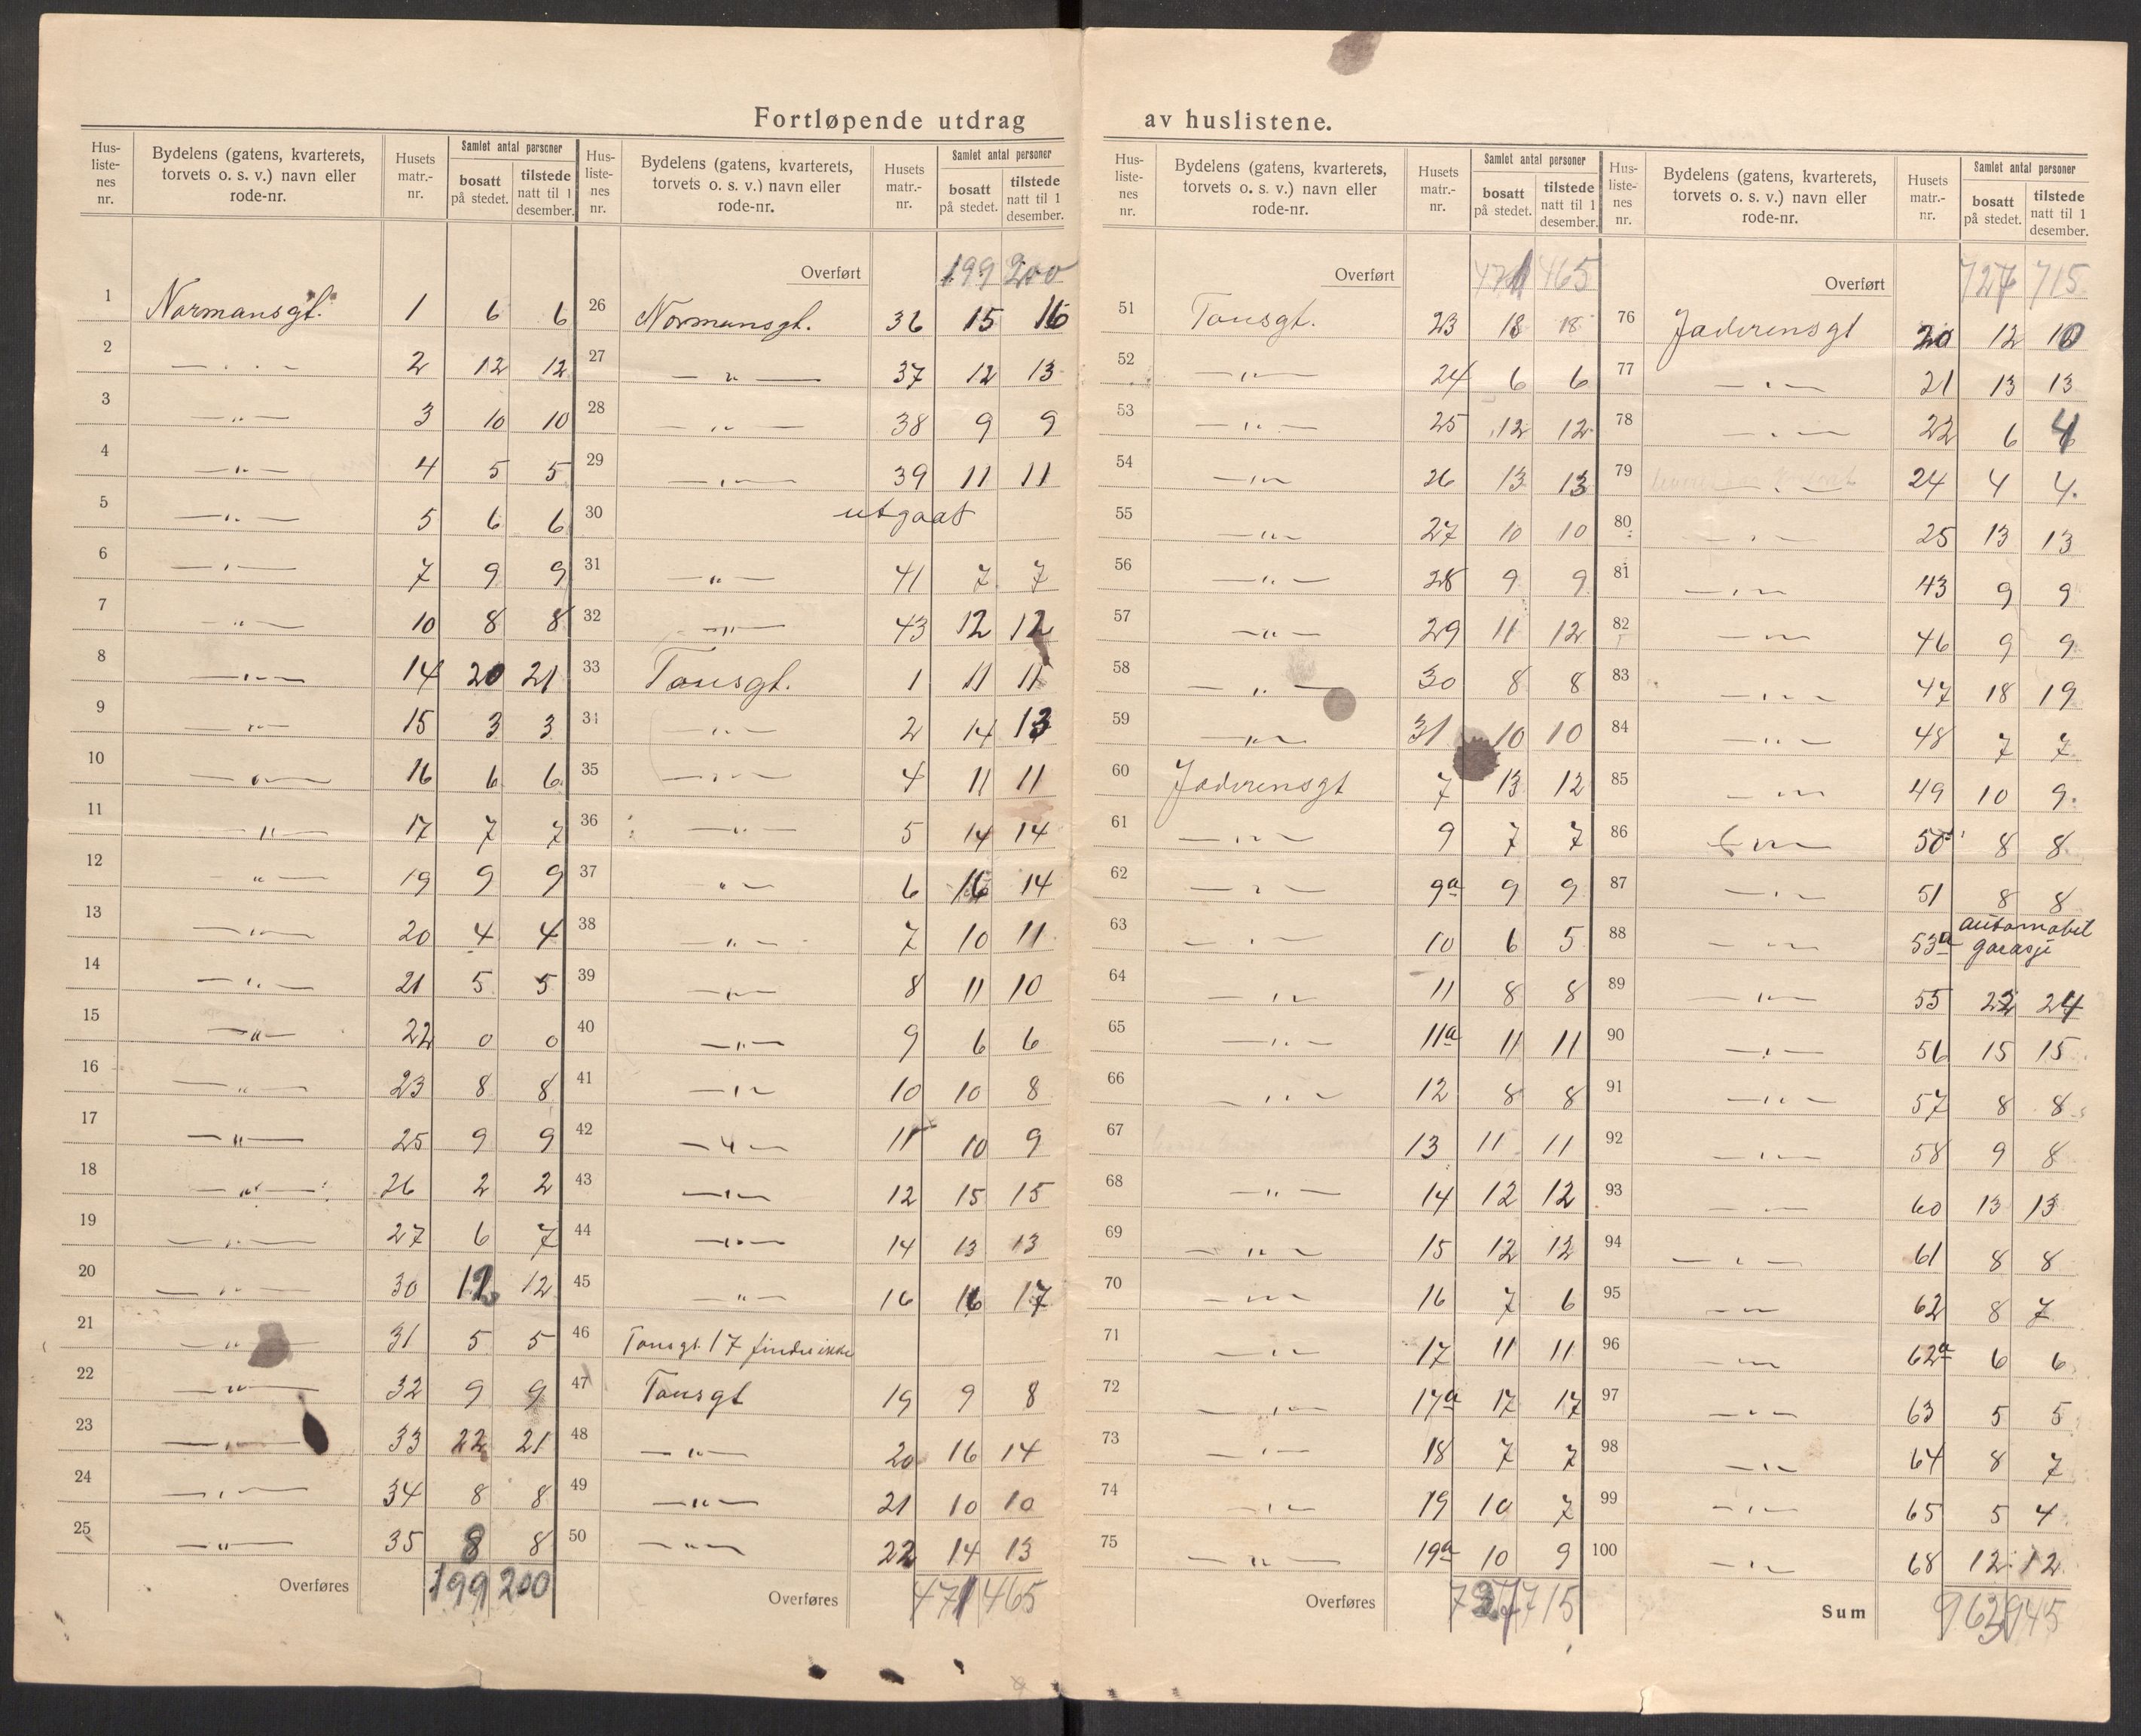 Fortløpende utdrag av huslistene.
Hus-liste-nes nr. | Bydelens (gatens, kvarterets, torvets o. s. v.) navn eller rode-nr. | Husets matr.-nr. | Samlet antal personer bosatt på stedet. | tilstede natt til 1 desember.
1 Normansgt. 1 6 6
2 — " — 2 12 12
3 — " — 3 10 10
4 — " — 4 5 5
5 — " — 5 6 6
6 — " — 7 9 9
7 — " — 10 8 8
8 — " — 14 20 21
9 — " — 15 3 3
10 — " — 16 6 6
11 — " — 17 7 7
12 — " — 19 9 9
13 — " — 20 4 4
14 — " — 21 5 5
15 — " — 22 0 0
16 — " — 23 8 8
17 — " — 25 9 9
18 — " — 26 2 2
19 — " — 27 6 7
20 — " — 30 12 12
21 — " — 31 5 5
22 — " — 32 9 9
23 — " — 33 22 21
24 — " — 34 8 8
25 — " — 35 8 8
Overføres 199 200
Hus-liste-nes nr. | Bydelens (gatens, kvarterets, torvets o. s. v.) navn eller rode-nr. | Husets matr.-nr. | Samlet antal personer bosatt på stedet. | tilstede natt til 1 desember.
Overført 199 200
26 Normansgt. 36 15 16
27 — " — 37 12 13
28 — " — 38 9 9
29 — " — 39 11 11
30 utgaat
31 — " — 41 7 7
32 — " — 43 12 12
33 Tousgt. 1 11 11
34 — " — 2 14 13
35 — " — 4 11 11
36 — " — 5 14 14
37 — " — 6 16 14
38 — " — 7 10 11
39 — " — 8 11 10
40 — " — 9 6 6
41 — " — 10 10 8
42 — " — 11 10 9
43 — " — 12 15 15
44 — " — 14 13 13
45 — " — 16 16 17
46 Tousgt. 17 findes ikke
47 Tousgt 19 9 8
48 — " — 20 16 14
49 — " — 21 10 10
50 — " — 22 14 13
Overføres 471 465
Hus-liste-nes nr. | Bydelens (gatens, kvarterets, torvets o. s. v.) navn eller rode-nr. | Husets matr.-nr. | Samlet antal personer bosatt på stedet. | tilstede natt til 1 desember.
Overført 471 465
51 Tousgt. 23 18 18
52 — " — 24 6 6
53 — " — 25 12 12
54 — " — 26 13 13
55 — " — 27 10 10
56 — " — 28 9 9
57 — " — 29 11 12
58 — " — 30 8 8
59 — " — 31 10 10
60 Jaderensgt 7 13 12
61 — " — 9 7 7
62 — " — 9a 9 9
63 — " — 10 6 5
64 — " — 11 8 8
65 — " — 11a 11 11
66 — " — 12 8 8
67 13 11 11
68 — " — 14 12 12
69 — " — 15 12 12
70 — " — 16 7 6
71 — " — 17 11 11
72 — " — 17a 17 17
73 — " — 18 7 7
74 — " — 19 10 7
75 — " — 19a 10 9
Overføres 727 715
Hus-liste-nes nr. | Bydelens (gatens, kvarterets, torvets o. s. v.) navn eller rode-nr. | Husets matr.-nr. | Samlet antal personer bosatt på stedet. | tilstede natt til 1 desember.
Overført 727 715
76 Jaderensgt 20 12 10
77 — " — 21 13 13
78 — " — 22 6 4
79 — " — 24 4 4
80 — " — 25 13 13
81 — " — 43 9 9
82 — " — 46 9 9
83 — " — 47 18 19
84 — " — 48 7 7
85 — " — 49 10 9
86 — " — 50 8 8
87 — " — 51 8 8
88 — " — 53a automobil garasje
89 — " — 55 22 24
90 — " — 56 15 15
91 — " — 57 8 8
92 — " — 58 9 8
93 — " — 60 13 13
94 — " — 61 8 8
95 — " — 62 8 7
96 — " — 62a 6 6
97 — " — 63 5 5
98 — " — 64 8 7
99 — " — 65 5 4
100 — " — 68 12 12
Sum 963 945